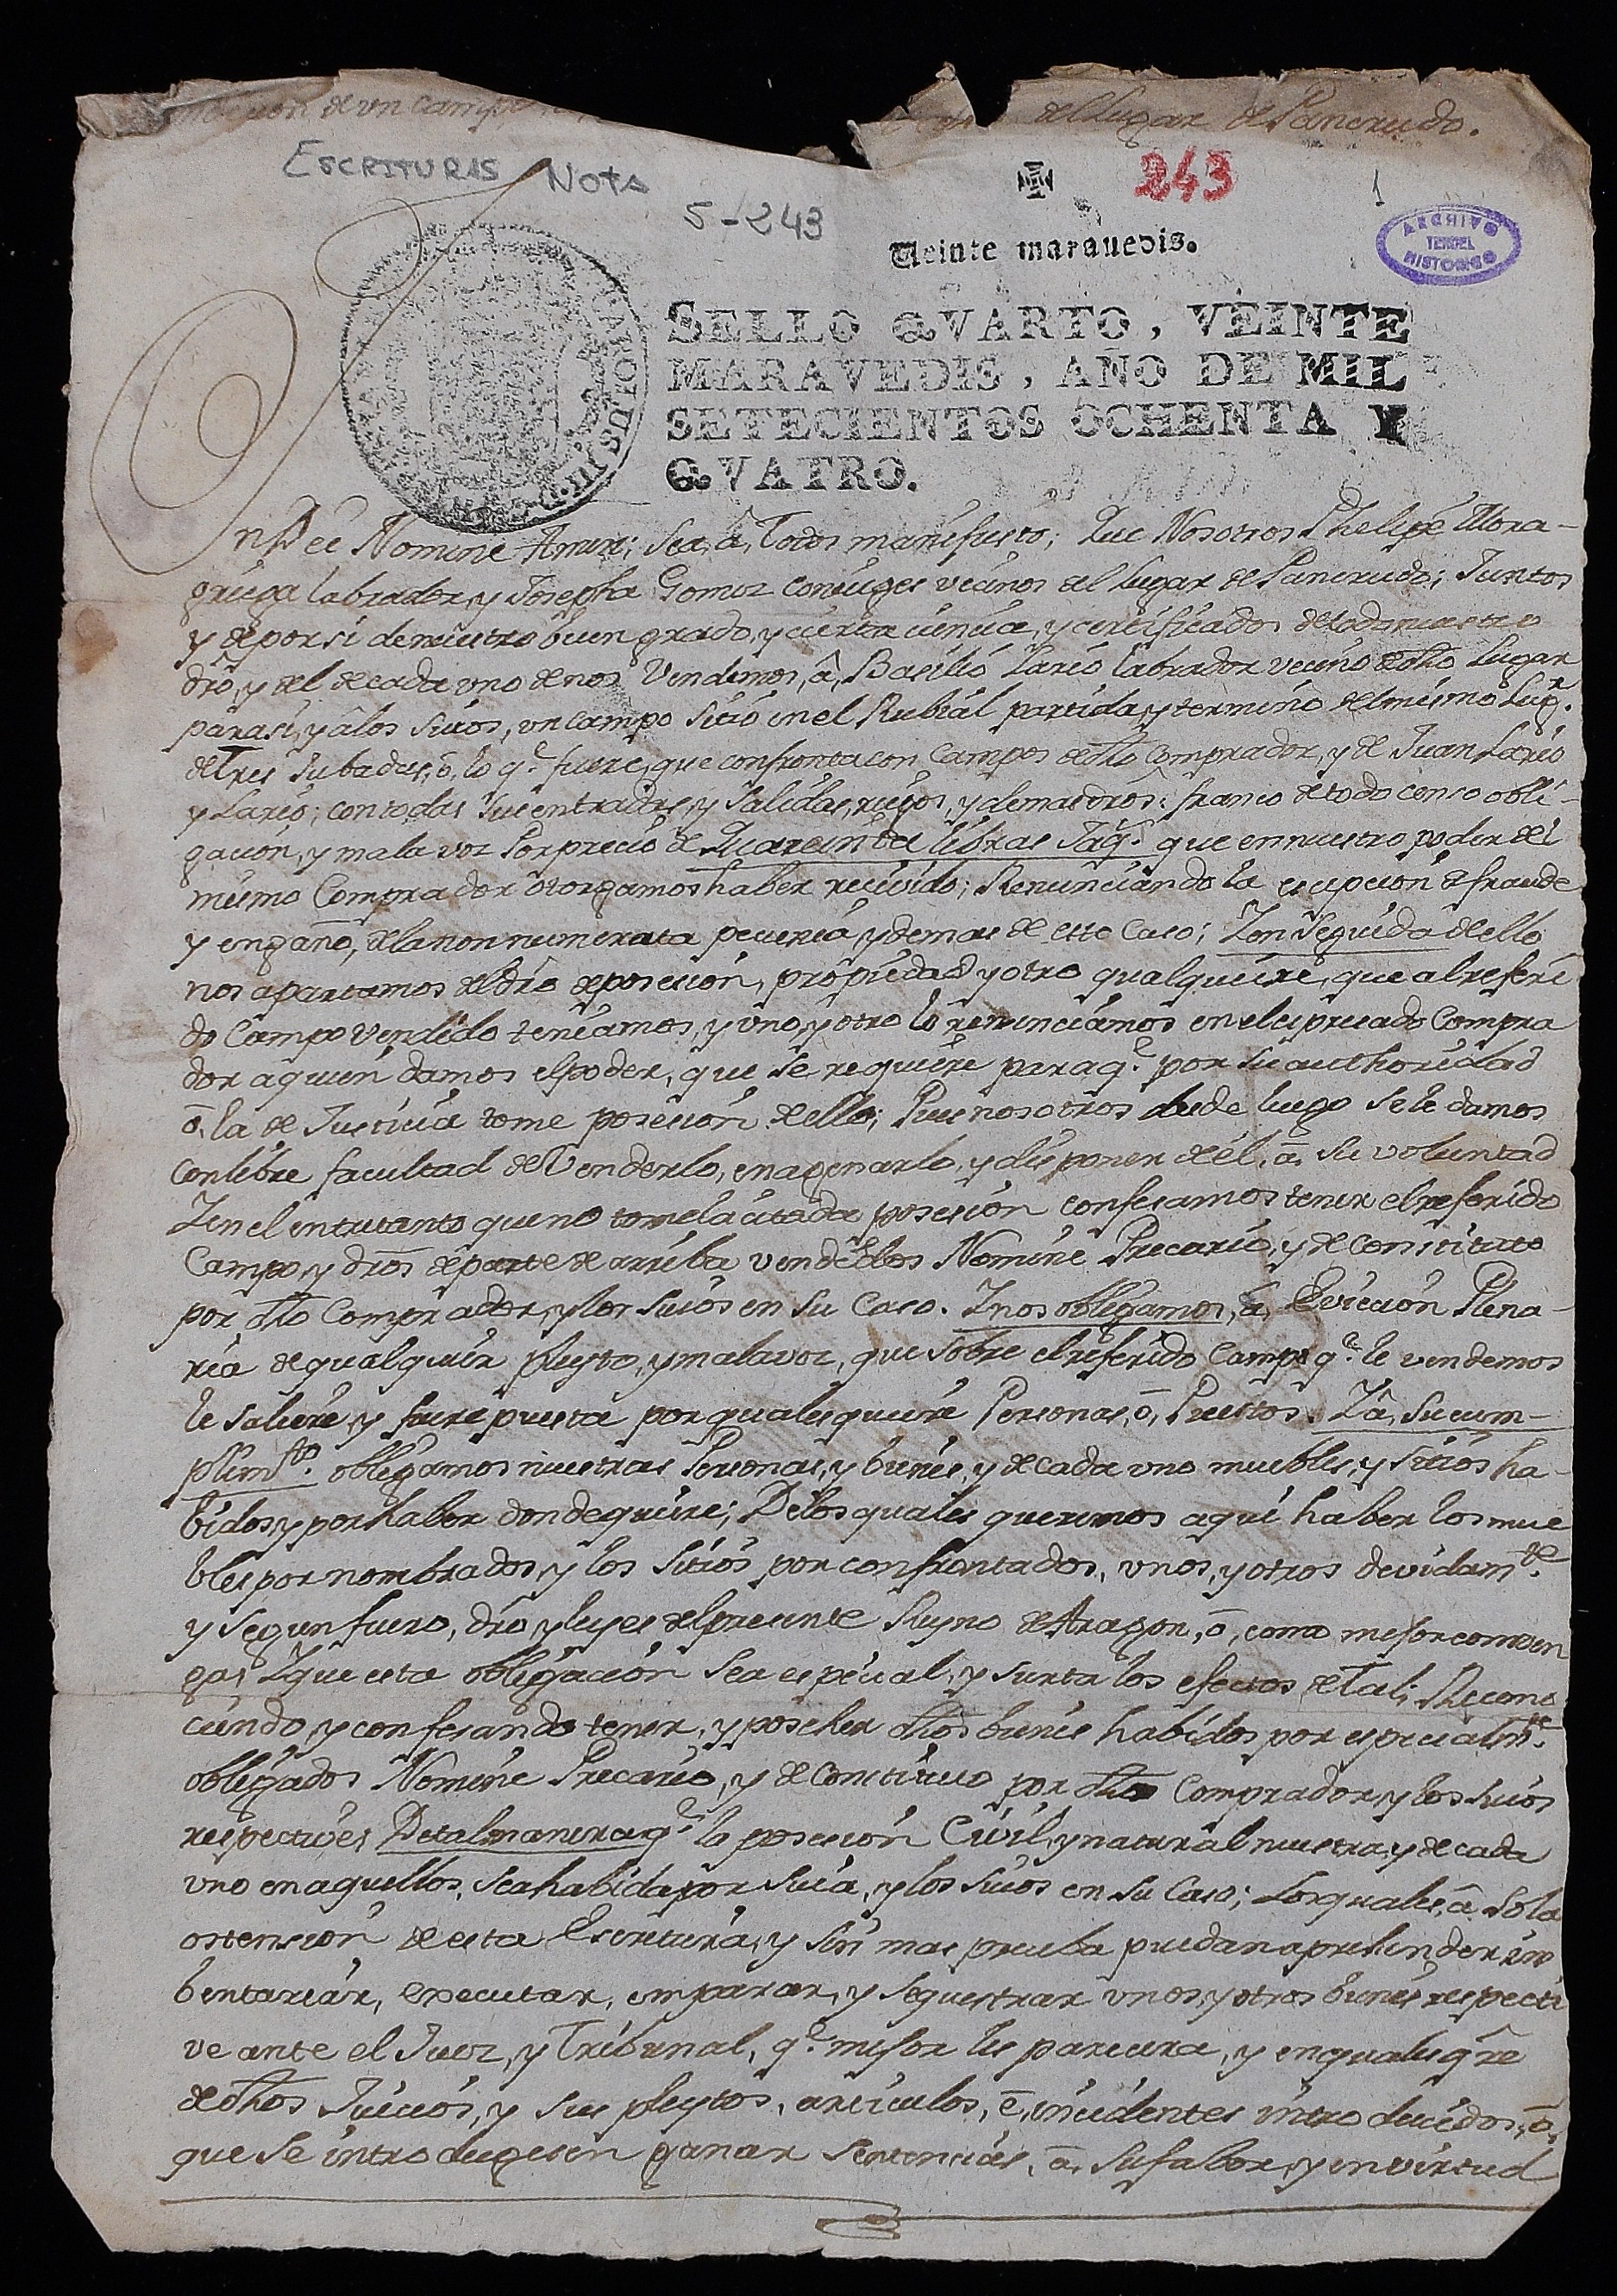 de un campo del Lugar de Pancrudo.
ESCRITURAS NOTA
243
1
5-243
Veinte marauedis.
ARCHIVO HISTORICO TERUEL
SELLO QVARTO, VEINTE
MARAVEDIS, AÑO DE MIL
SETECIENTOS OCHENTA Y
QVATRO.
In Dei Nomine Amen; Sea, â, Todos manifiesto; Que Nosotros Phelipe Mora-
griega labrador, y Josepha Gomez conjuges vecinos del Lugar de Pancrudo; Juntos
y de por si de nuestro buen grado, y cierta ciencia, y certificados de todo nuestro
dro, y del de cada uno de nos Vendemos, â, Basilio Lario labrador vecino de dho Lugar
para si, y â los suios, un campo sitio en el Rubial partida, y termino del mismo Lugr.
de Tres Jubadas, ô, lo q.e fuere, que confronta con Campos de dho Comprador, y de Juan Lario
y Lario; con todas sus entradas, y salidas, riegos, y demas dros: franco de todo censo obli-
gacion, y mala voz Por precio de Quareinta libras Jaq.s que en nuestro poder del
mismo Comprador otorgamos haber recivido; Renunciando la escepcion de fraude
y engaño, de la non numerata pecunia, y demas de este Caso; Y en Seguida de ello
nos apartamos del dro de posesion, propiedad, y otro qualquiere, que al referi
do Campo Vendido teniamos, y uno, y otro lo renunciamos en el espresado Compra
dor a quien damos el poder, que se requiere para q.e por su authoridad
ô, la de Justicia tome posesion de ello; Pues nosotros desde luego se le damos
con libre facultad de Venderlo, enagenarlo, y disponer de él, â, su voluntad
Y en el entretanto que no tome la citada posesion confesamos tener el referido
Campo, y dros de parte de arriba vendidos Nomine Precario, y de Constituto
por dho Comprador, y los suios en su Caso. Y nos obligamos, â, Eviccion Plena-
ria de qualquier pleyto, y mala voz, que sobre el referido Campo q.e le vendemos
le saliere, y fuere puesta por qualesquiere Personas, ô, Puestos. Y â, su cum-
plim.to obligamos nuestras Personas, y bienes, y de cada uno muebles, y sitios ha-
bidos, y por haber donde quiere; De los quales queremos aqui haber los mue
bles por nombrados, y los sitios por confrontados, unos, y otros devidam.te
y segun fuero, dro, y leyes del presente Reyno de Aragon, ô, como mejor conven
ga; Y que esta obligacion sea especial, y surta los efectos de tal; Recono
ciendo, y confesando tener, y poseher dhos bienes habidos por especialm.te
obligados Nomine Precario, y de Constituto por dho Comprador, y los suios
respective; De tal manera q.e la posesion Civil, y natural nuestra, y de cada
uno en aquellos, sea habida por suia, y los suios en su Caso; Los quales, â, sola
ostension de esta Escritura, y sin mas prueba puedan aprehender, in
bentariar, executar, emparar, y sequestrar unos, y otros bienes respecti
ve ante el Juez, y Tribunal, q.e mejor les pareciera, y en qualesq.re
de dhos Juicios, y sus pleytos, articulos, ê, incidentes introducidos, ô,
que se introdugesen ganar sentencias, â, su fabor, y en virtud